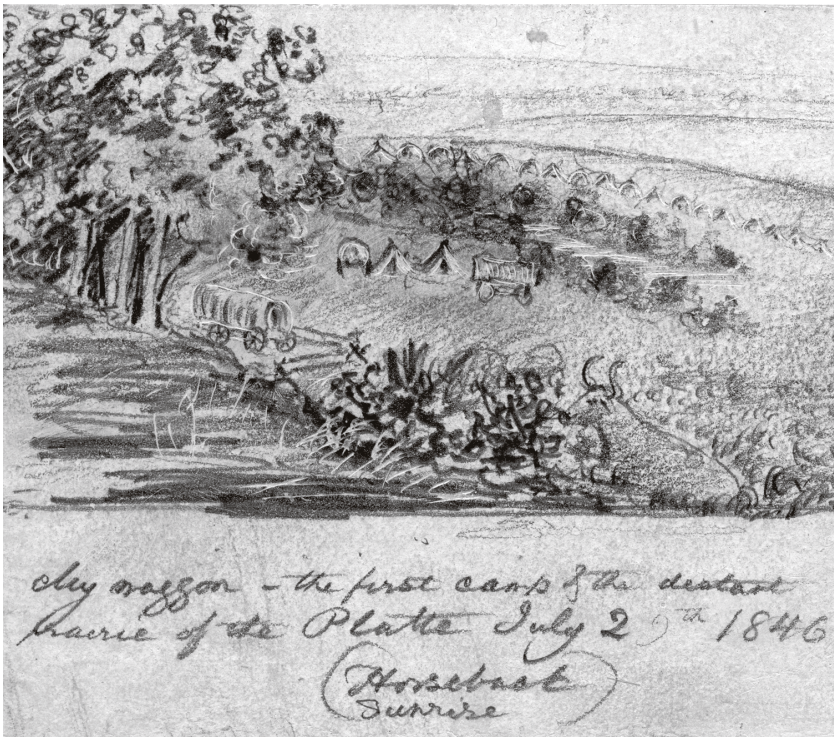 My waggon - the first camp & the distant
prairie of the Platte July 29th 1846
(Horseback
Sunrise)